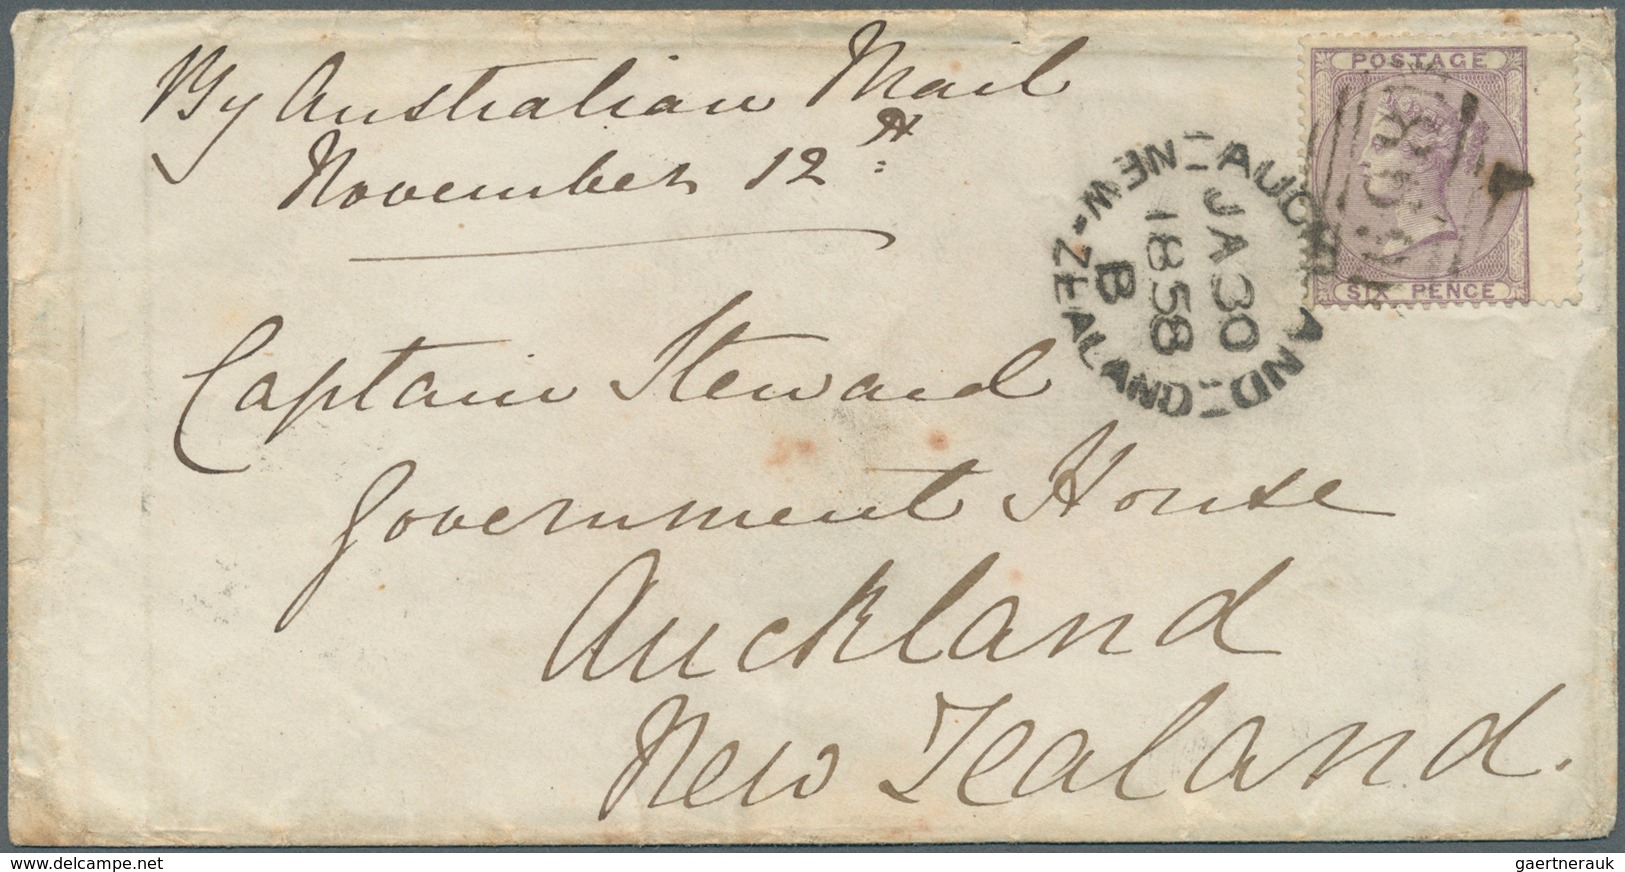 By Australian Mail
November 12th
POSTAGE
SIX PENCE
AUCKLAND - NEW-ZEALAND
JA 30
1858
B
Captain Steward
Government House
Auckland
New Zealand.
delcampe.net
gaertnerauk